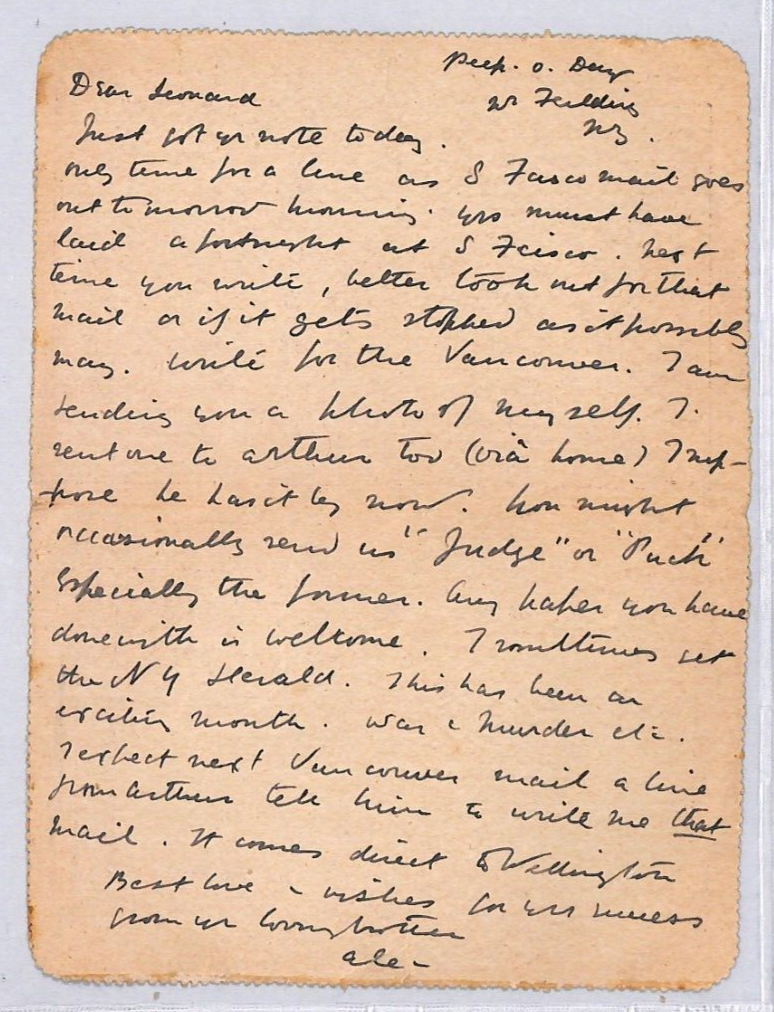 Peep. o. Day
nr Feilding
NZ.
Dear Leonard
Just got yr note today.
only time for a line as S Fcisco mail goes
out tomorrow morning. yrs must have
laid a fortnight at S Fcisco. next
time you write, better look out for that
mail or if it gets stopped as it possibly
may. write for the Vancouver. I am
sending you a photo of myself. I.
sent one to Arthur too (viâ home) I sup-
pose he has it by now. You might
occasionally send us "Judge" or "Puck"
Especially the former. Any paper you have
done with is welcome. I sometimes get
the N Y Herald. This has been an
exciting month. War & Murder etc.
I expect next Vancouver mail a line
from Arthur tell him to write me that
mail. It comes direct to Wellington
Best love & wishes for yr success
from yr loving brother